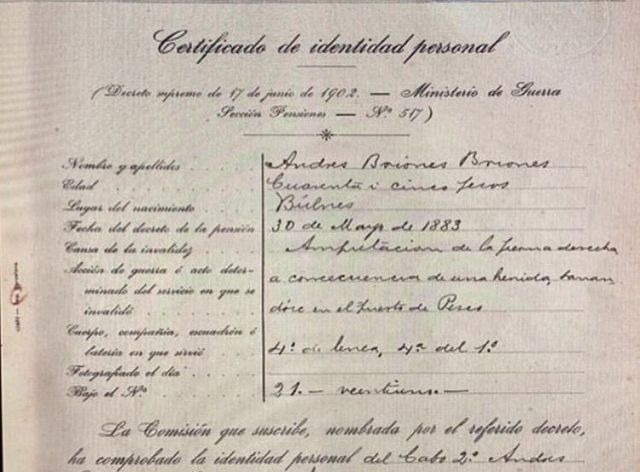 Certificado de identidad personal
(Decreto supremo de 17 de junio de 1902. — Ministerio de Guerra
Sección Pensiones — Nº 517)
Nombre y apellidos Andres Briones Briones
Edad Cuarenta i cinco pesos
Lugar del nacimiento Búlnes
Fecha del decreto de la pensión 30 de Mayo de 1883
Causa de la invalidez Amputacion de la pierna derecha
Acción de guerra ó acto deter- a concecuencia de una herida,
minado del servicio en que se dose en el puerto de
invalidó
Cuerpo, compañia, escuadrón ó
batería en que sirvió 4º de linea, 4ª del 1º
Fotografiado el día
Bajo el Nº 21.— veintiuno.—
La Comisión que suscribe, nombrada por el referido decreto,
ha comprobado la identidad personal del Cabo 2º Andres